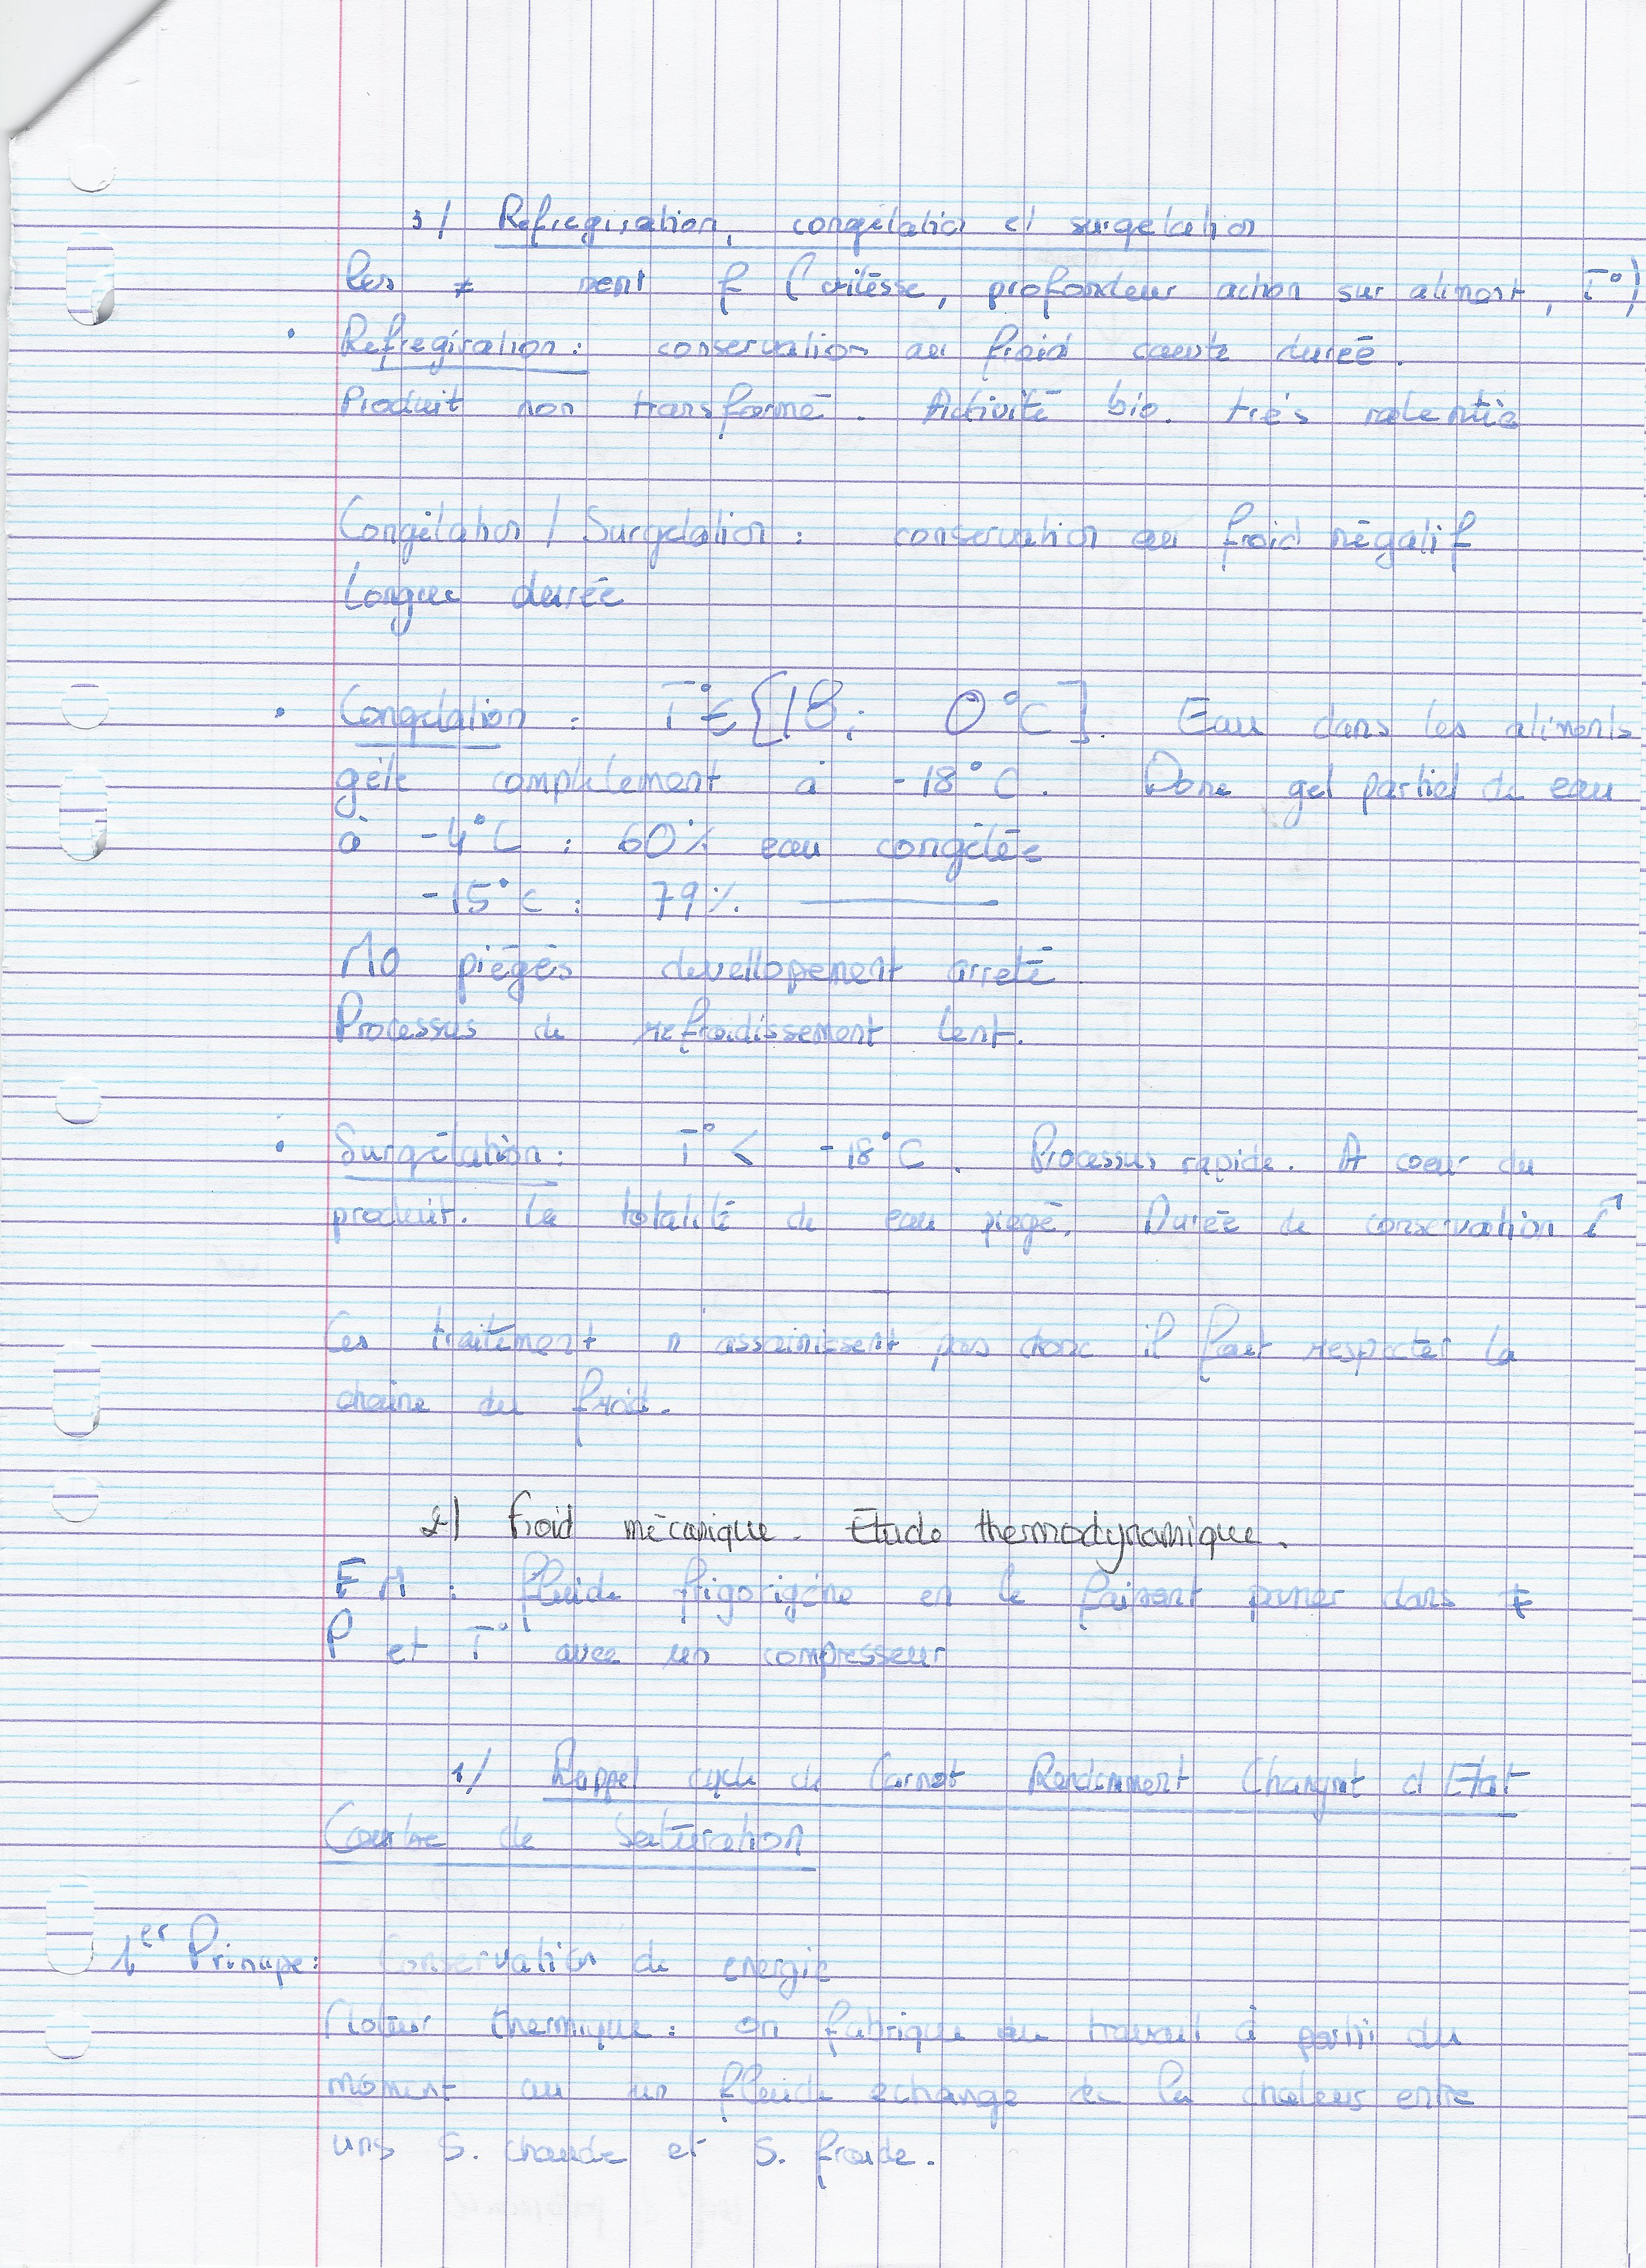 3/ Refregiration, congélation et surgelation
les ≠ sent f (vitesse, profondeur action sur aliment, T°)
• Refregiration : conservation au froid courte durée.
Produit non transformé. Activité bio. très ralentie
Congélation / Surgelation : conservation au froid négatif
Longue durée
• Congelation : T° € [18; 0°C]. Eau dans les aliments
gèle complètement à -18°C. Donc gel partiel de eau
à -4°C : 60% eau congélée
-15°C : 79% ———
MO piégés devellopement arreté
Processus de refroidissement lent.
• Surgélation : T° < -18°C. Processus rapide. A coeur du
produit. La totalité de eau piegé. Durée de conservation ↗
Ces traitement n assainissent pas donc il faut respecter la
chaine du froid.
2) Froid mécanique. Etude thermodynamique.
FM : fluide frigorigène en le faisant passer dans ≠
P et T° avec un compresseur
1/ Rappel cycle de Carnot Rendement Changmt d Etat
Courbe de Saturation
1er Principe : Conservation de energie
Moteur thermique : on fabrique du travail à partir du
moment ou un fluide echange de la chaleur entre
uns S. chaude et S. froide.